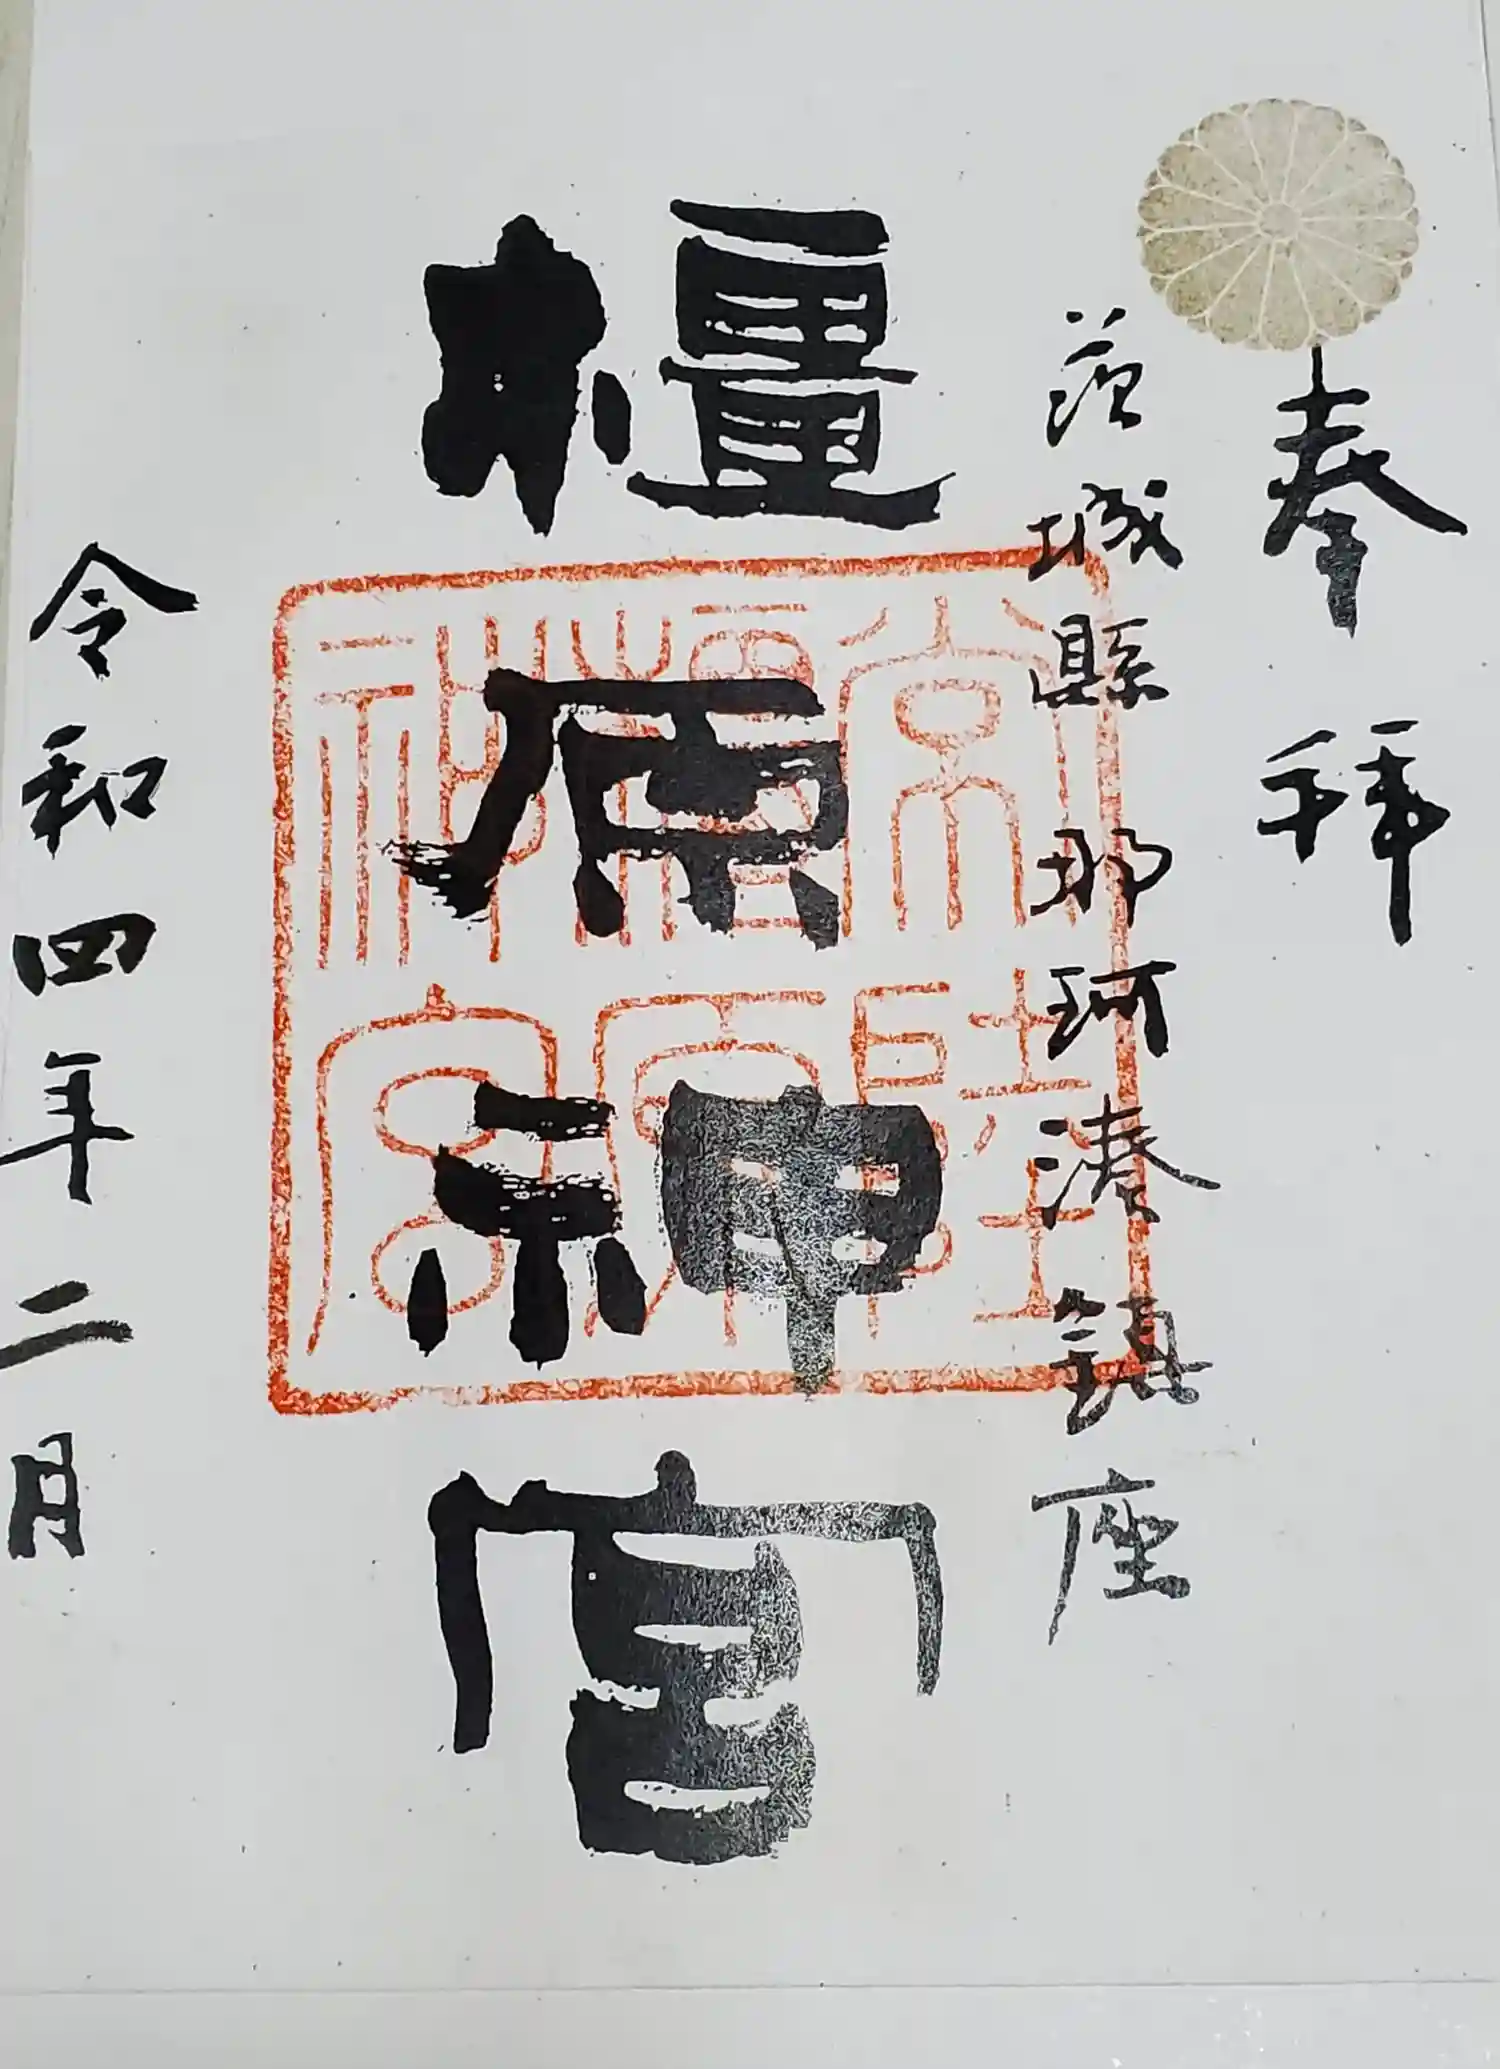 奉拝
茨城縣那珂湊鎮座
橿原神宮
常陸
橿原
神宮
令和四年二月